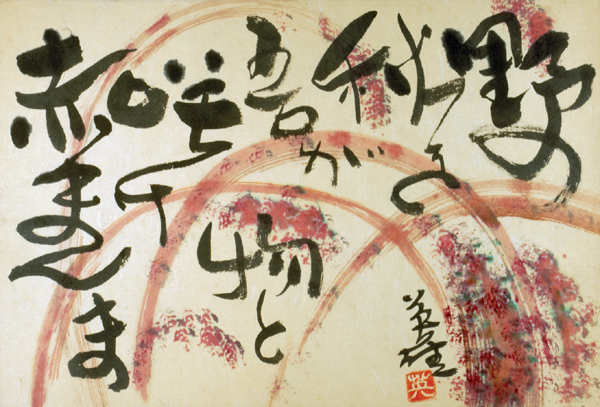 野の
秋を
吾が
物と
咲く
赤まんま
英